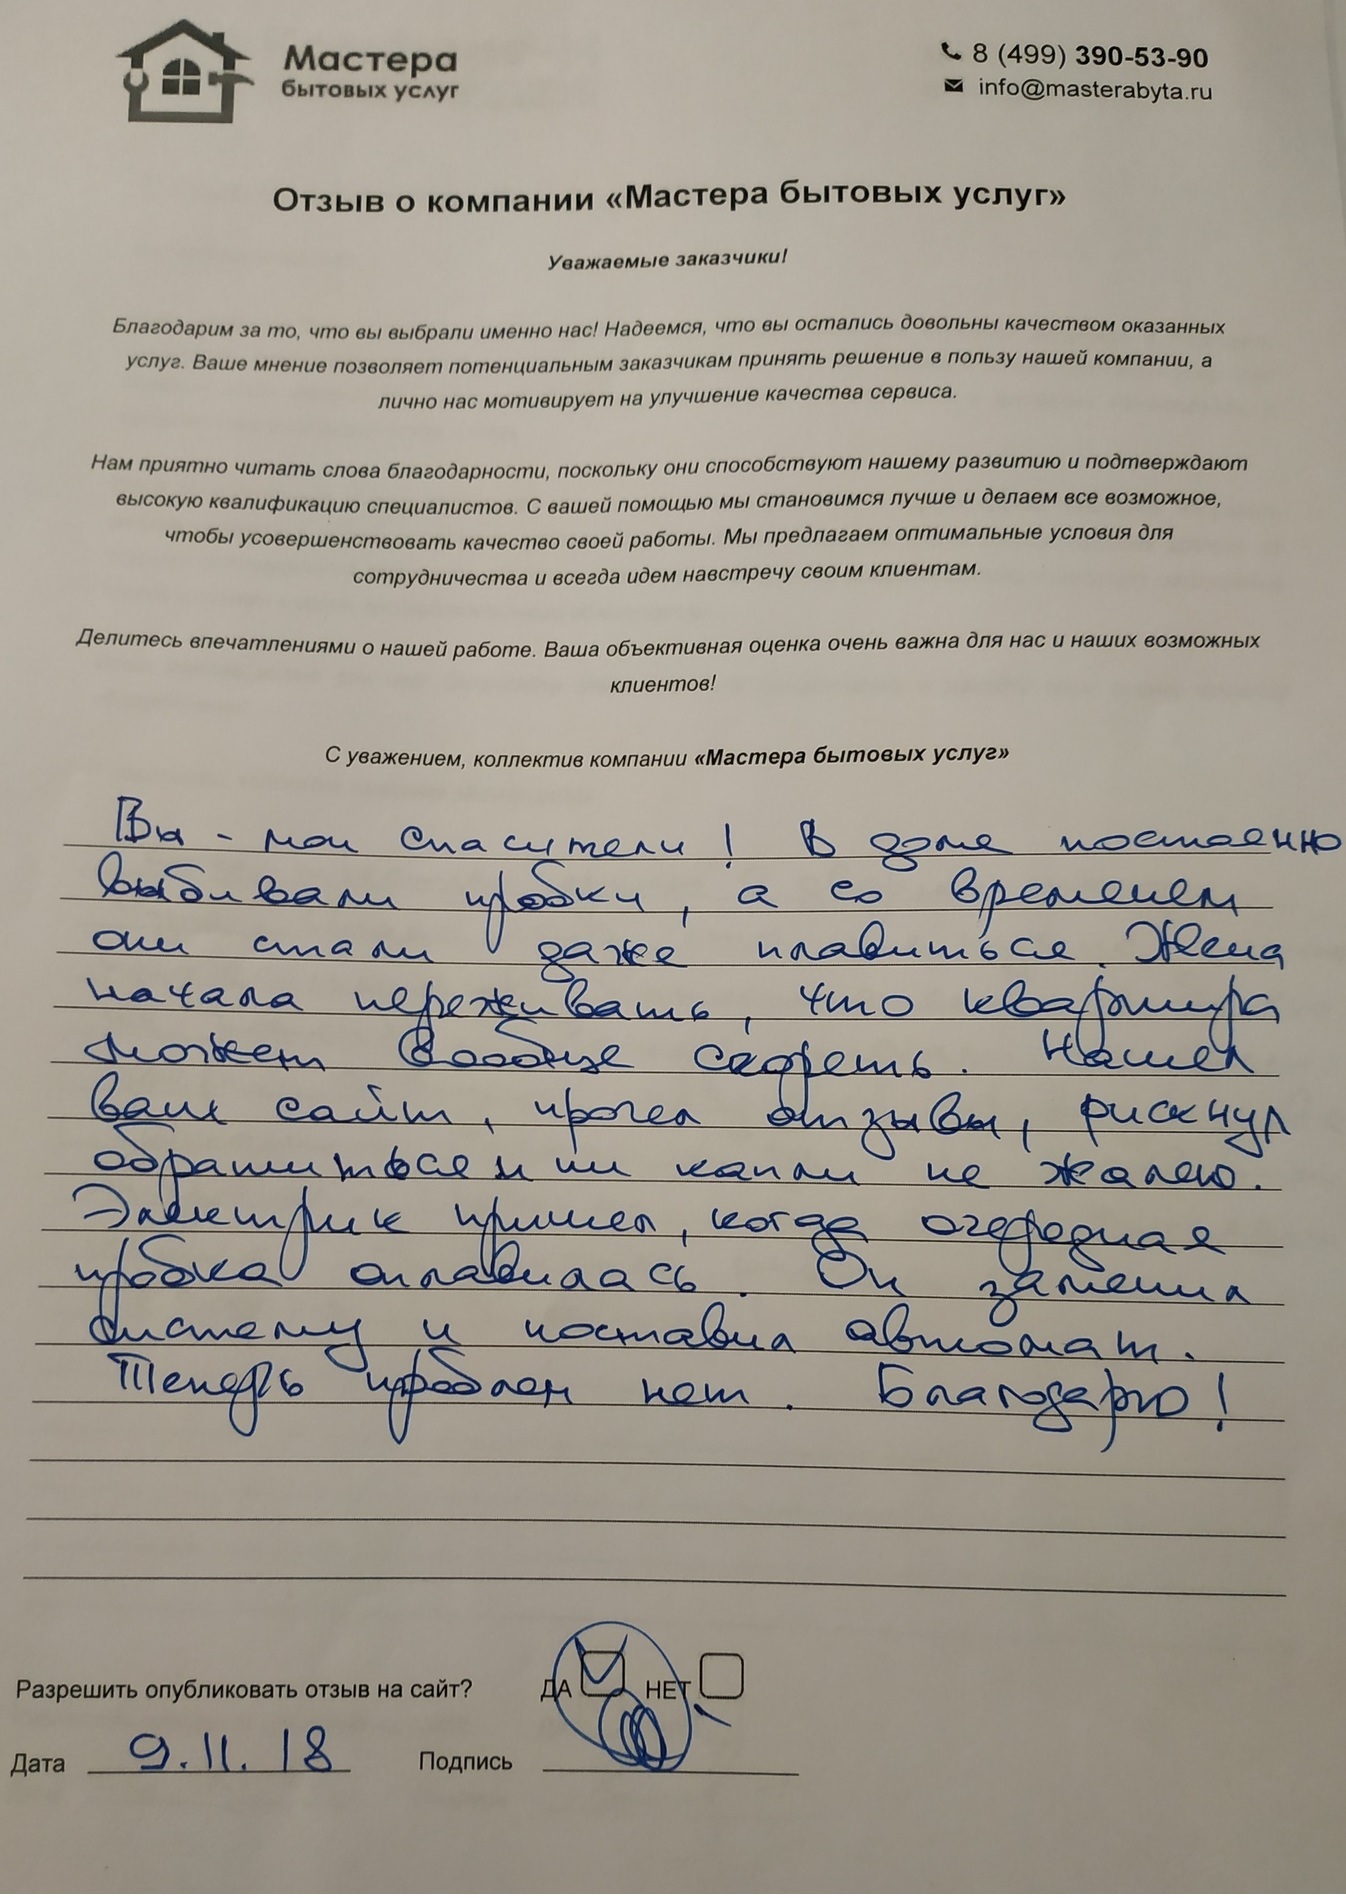 Мастера
бытовых услуг
8 (499) 390-53-90
info@masterabyta.ru
Отзыв о компании «Мастера бытовых услуг»
Уважаемые заказчики!
Благодарим за то, что вы выбрали именно нас! Надеемся, что вы остались довольны качеством оказанных
услуг. Ваше мнение позволяет потенциальным заказчикам принять решение в пользу нашей компании, а
лично нас мотивирует на улучшение качества сервиса.
Нам приятно читать слова благодарности, поскольку они способствуют нашему развитию и подтверждают
высокую квалификацию специалистов. С вашей помощью мы становимся лучше и делаем все возможное,
чтобы усовершенствовать качество своей работы. Мы предлагаем оптимальные условия для
сотрудничества и всегда идем навстречу своим клиентам.
Делитесь впечатлениями о нашей работе. Ваша объективная оценка очень важна для нас и наших возможных
клиентов!
С уважением, коллектив компании «Мастера бытовых услуг»
Вы - мои спасители! В доме постоенно
выбивали пробки, а со временем
они стали даже плавиться. Жена
начала переживать, что квартира
может вообще сгореть. Нашел
ваш сайт, прочел отзывы, рискнул
обратиться и ни капли не жалею.
Электрик пришел, когда очередная
пробка оплавилась. Он заменил
систему и поставил автомат.
Теперь проблем нет. Благодарю!
Разрешить опубликовать отзыв на сайт? ДА НЕТ
Дата 9.11.18 Подпись